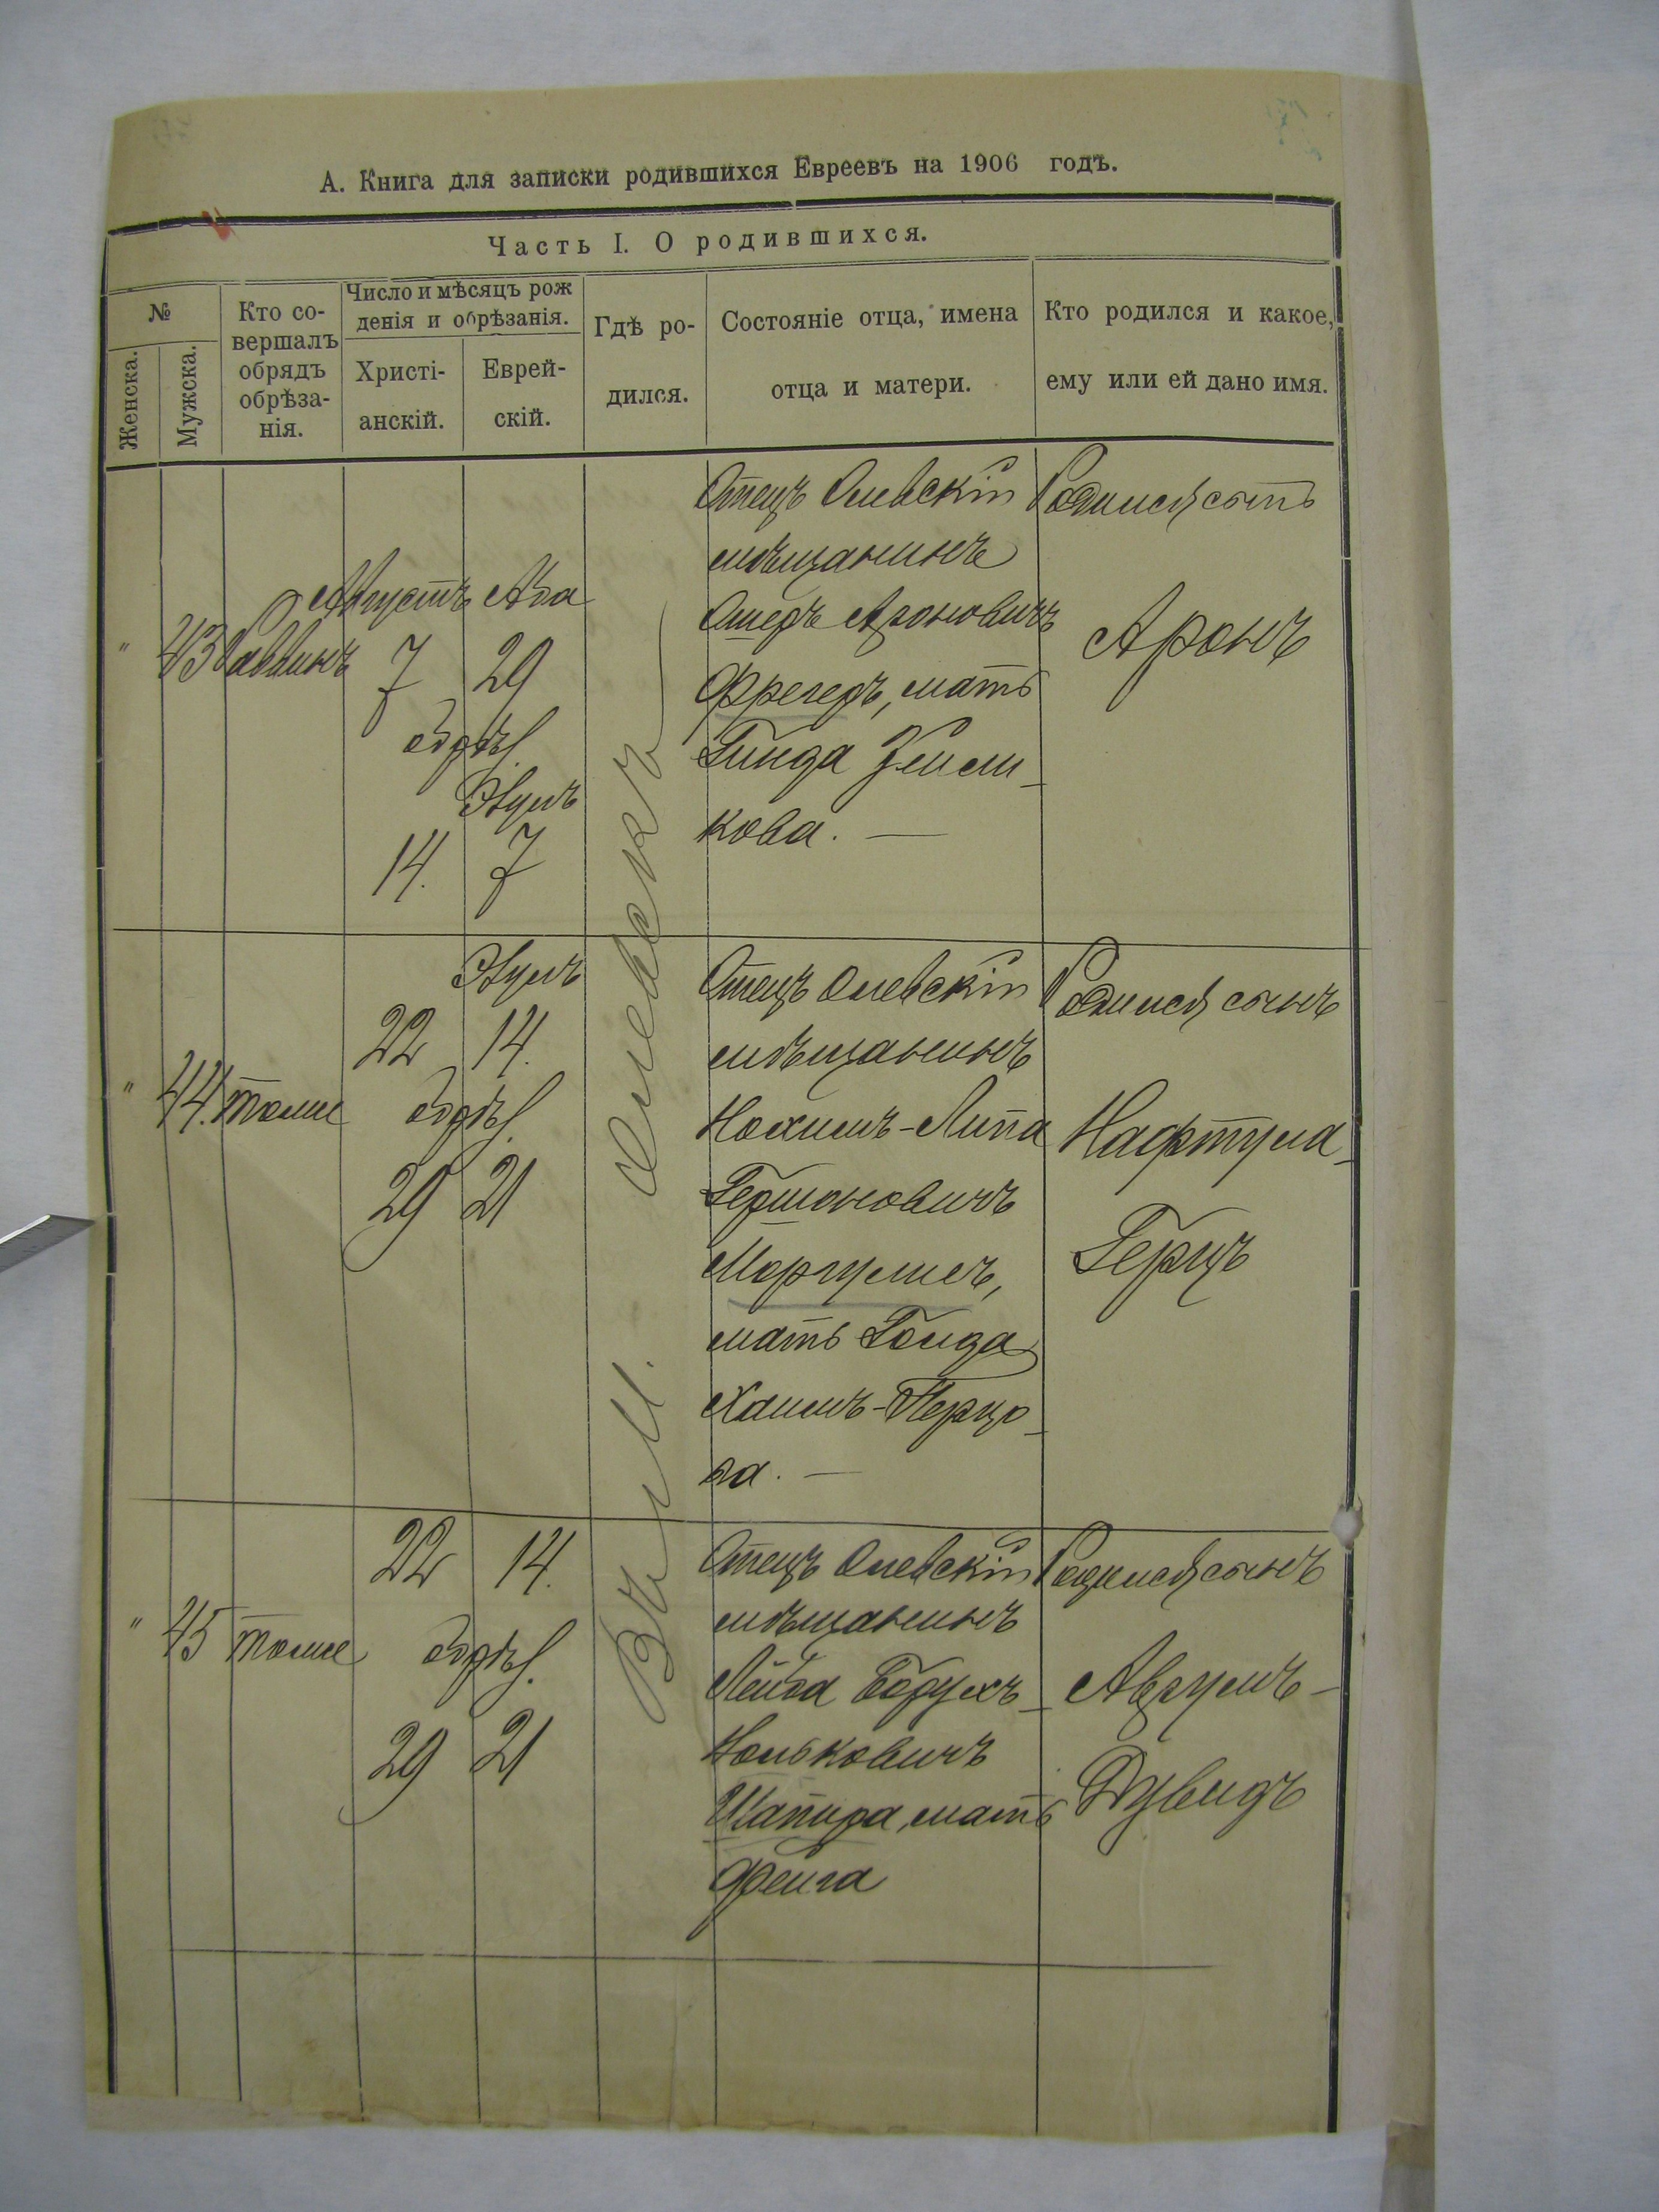 А. Книга для записки родившихся Евреевъ на 1906 годъ.
Часть I. О родившихся.
№
Женска.
Мужска.
Кто со-
вершалъ
обрядъ
обрѣза-
нія.
Число и мѣсяцъ рож
денія и обрѣзанія.
Христі-
анскій.
Еврей-
скій.
Гдѣ ро-
дился.
Состояніе отца, имена
отца и матери.
Кто родился и какое,
ему или ей дано имя.
Въ м. Олевскѣ
" 43 Раввинъ
Августъ Ава
7 29
обрѣз.
Элулъ
14. 7
Отецъ Олевскій
мѣщанинъ
Ошеръ Ароновичъ
Фрегеръ, мать
Гинда
кова. —
Родился сынъ
Аронъ
" 44. тоже
Элулъ
22 14.
обрѣз.
29 21
Отецъ Олевскій
мѣщанинъ
Нохимъ-Липа
Гершоновичъ
Моргулисъ,
мать Голда
Хаимъ-Герцо-
ва. —
Родился сынъ
Нафтула-
Герцъ
" 45 тоже
22 14.
обрѣз.
29 21
Отецъ Олевскій
мѣщанинъ
Лейба Борухъ-
Ноньковичъ
Шапира, мать
Фейга
Родился сынъ
Аврумъ-
Дувидъ